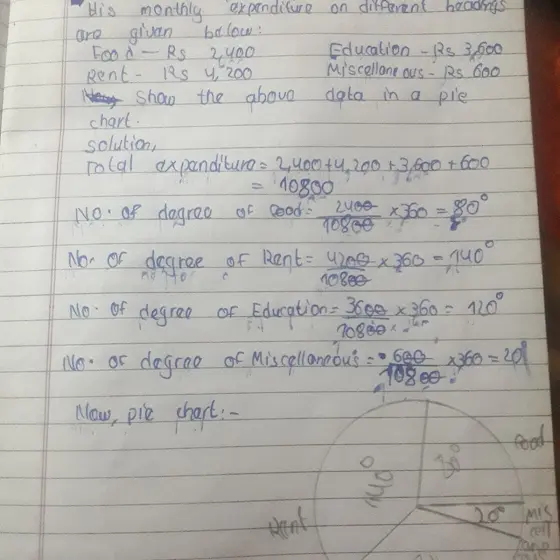 His monthly expenditure on different headings
are given below:
Food — Rs 2,400 Education - Rs 3,600
Rent - Rs 4,200 Miscellaneous - Rs 600
Show the above data in a pie
chart.
solution,
Total expanditure = 2,400+4,200+3,600+600
= 10800
No. of degree of food = 2400/10800 ×360 = 80°
No. of degree of Rent = 4200/10800 ×360 = 140°
No. of degree of Education = 3600/10800 ×360 = 120°
No. of degree of Miscellaneous = 600/10800 ×360 = 20°
Now, pie chart:-
80° food
140°
20° Mis
Rent cell